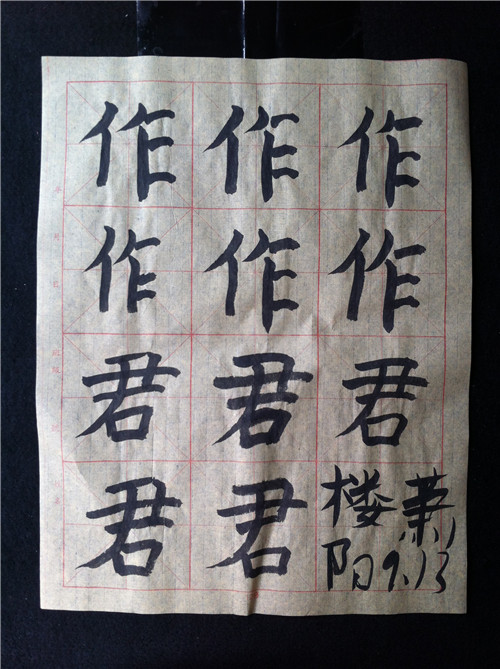 作作作
作作作
君君君
君君
楼萧
阳9.13